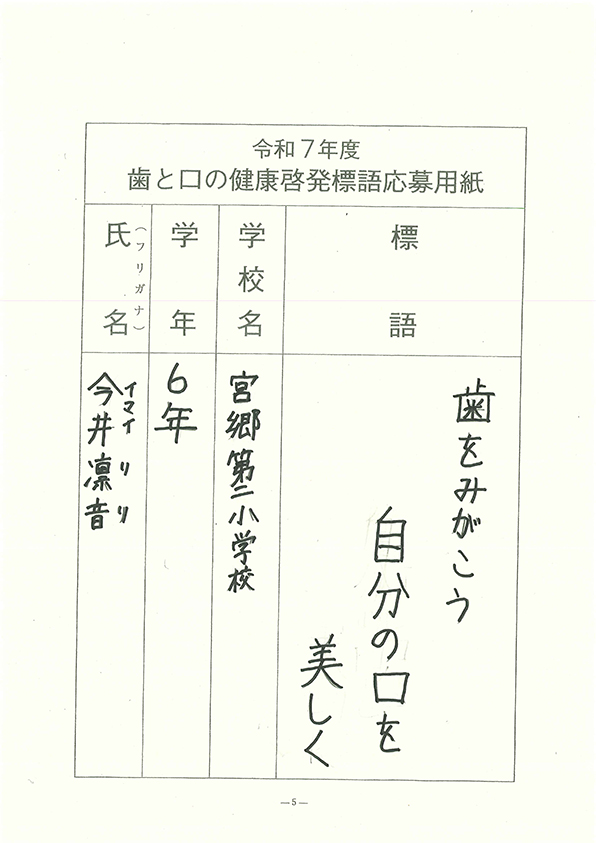 令和７年度
歯と口の健康啓発標語応募用紙
標語
学校名
学年
氏名
（フリガナ）
歯をみがこう
自分の口を
美しく
宮郷第二小学校
6年
今井凛音
イマイ リリ
—5—